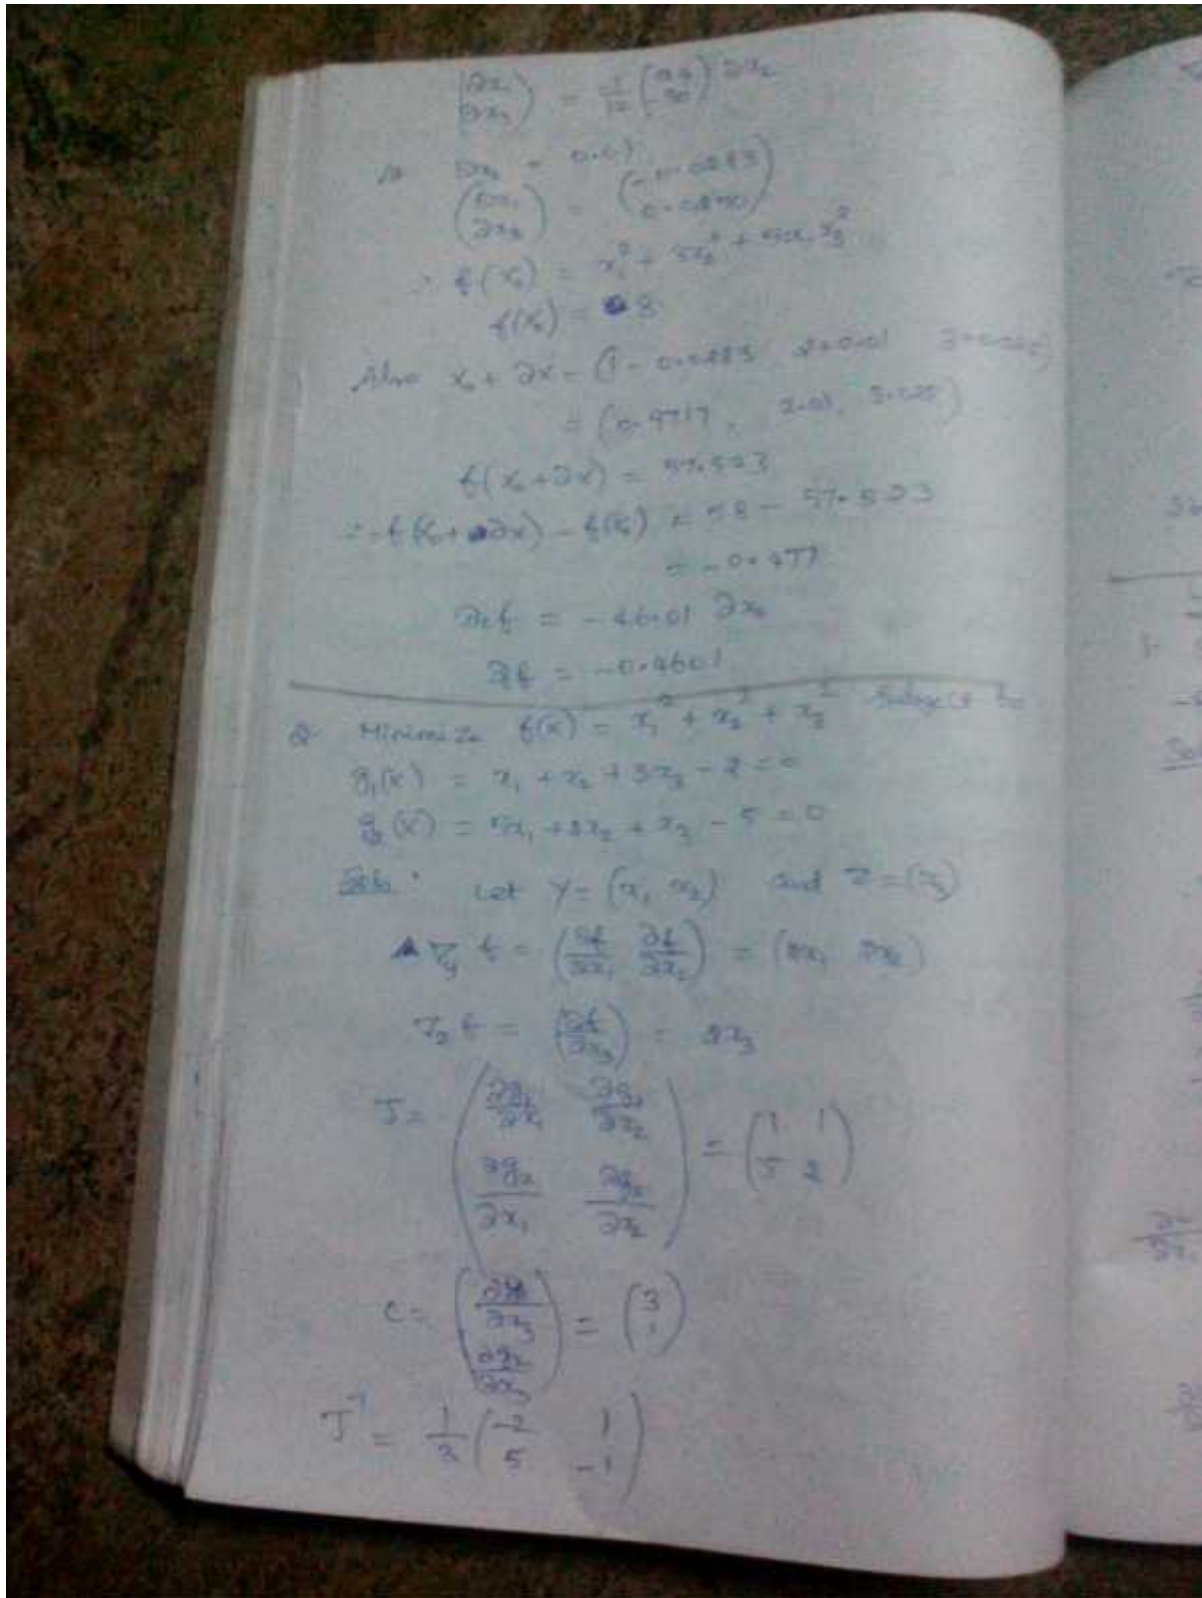 (∂x₁ ∂x₃) = 1/12 ( ) ∂x₂
∂x₂ = 0.01
(∂x₁ ∂x₃) = (-0.0283 0.0250)
∴ f(x₀) = x₁² + 3x₂² + 5x₁x₃²
f(x₀) = 58
Also x₀ + ∂x = (1 - 0.0283 2+0.01 3+0.025)
= (0.9717, 2.01, 3.025)
f(x₀+∂x) = 57.523
∴ f(x₀+∂x) - f(x₀) = 58 - 57.523
= -0.477
= -46.01 ∂x₂
∂f = -0.4601
Q. Minimize f(x) = x₁² + x₂² + x₃² Subject to
g₁(x) = x₁ + x₂ + 3x₃ - 2 = 0
g₂(x) = 5x₁ + 2x₂ + x₃ - 5 = 0
Soln. Let Y = (x₁ x₂) and Z = (x₃)
∇y f = (∂f/∂x₁ ∂f/∂x₂) = (2x₁ 2x₂)
∇z f = (∂f/∂x₃) = 2x₃
J = (∂g₁/∂x₁ ∂g₁/∂x₂
∂g₂/∂x₁ ∂g₂/∂x₂) = (1 1 5 2)
C = (∂g₁/∂x₃
∂g₂/∂x₃) = (3 1)
J⁻¹ = 1/3 (-2 1
5 -1)